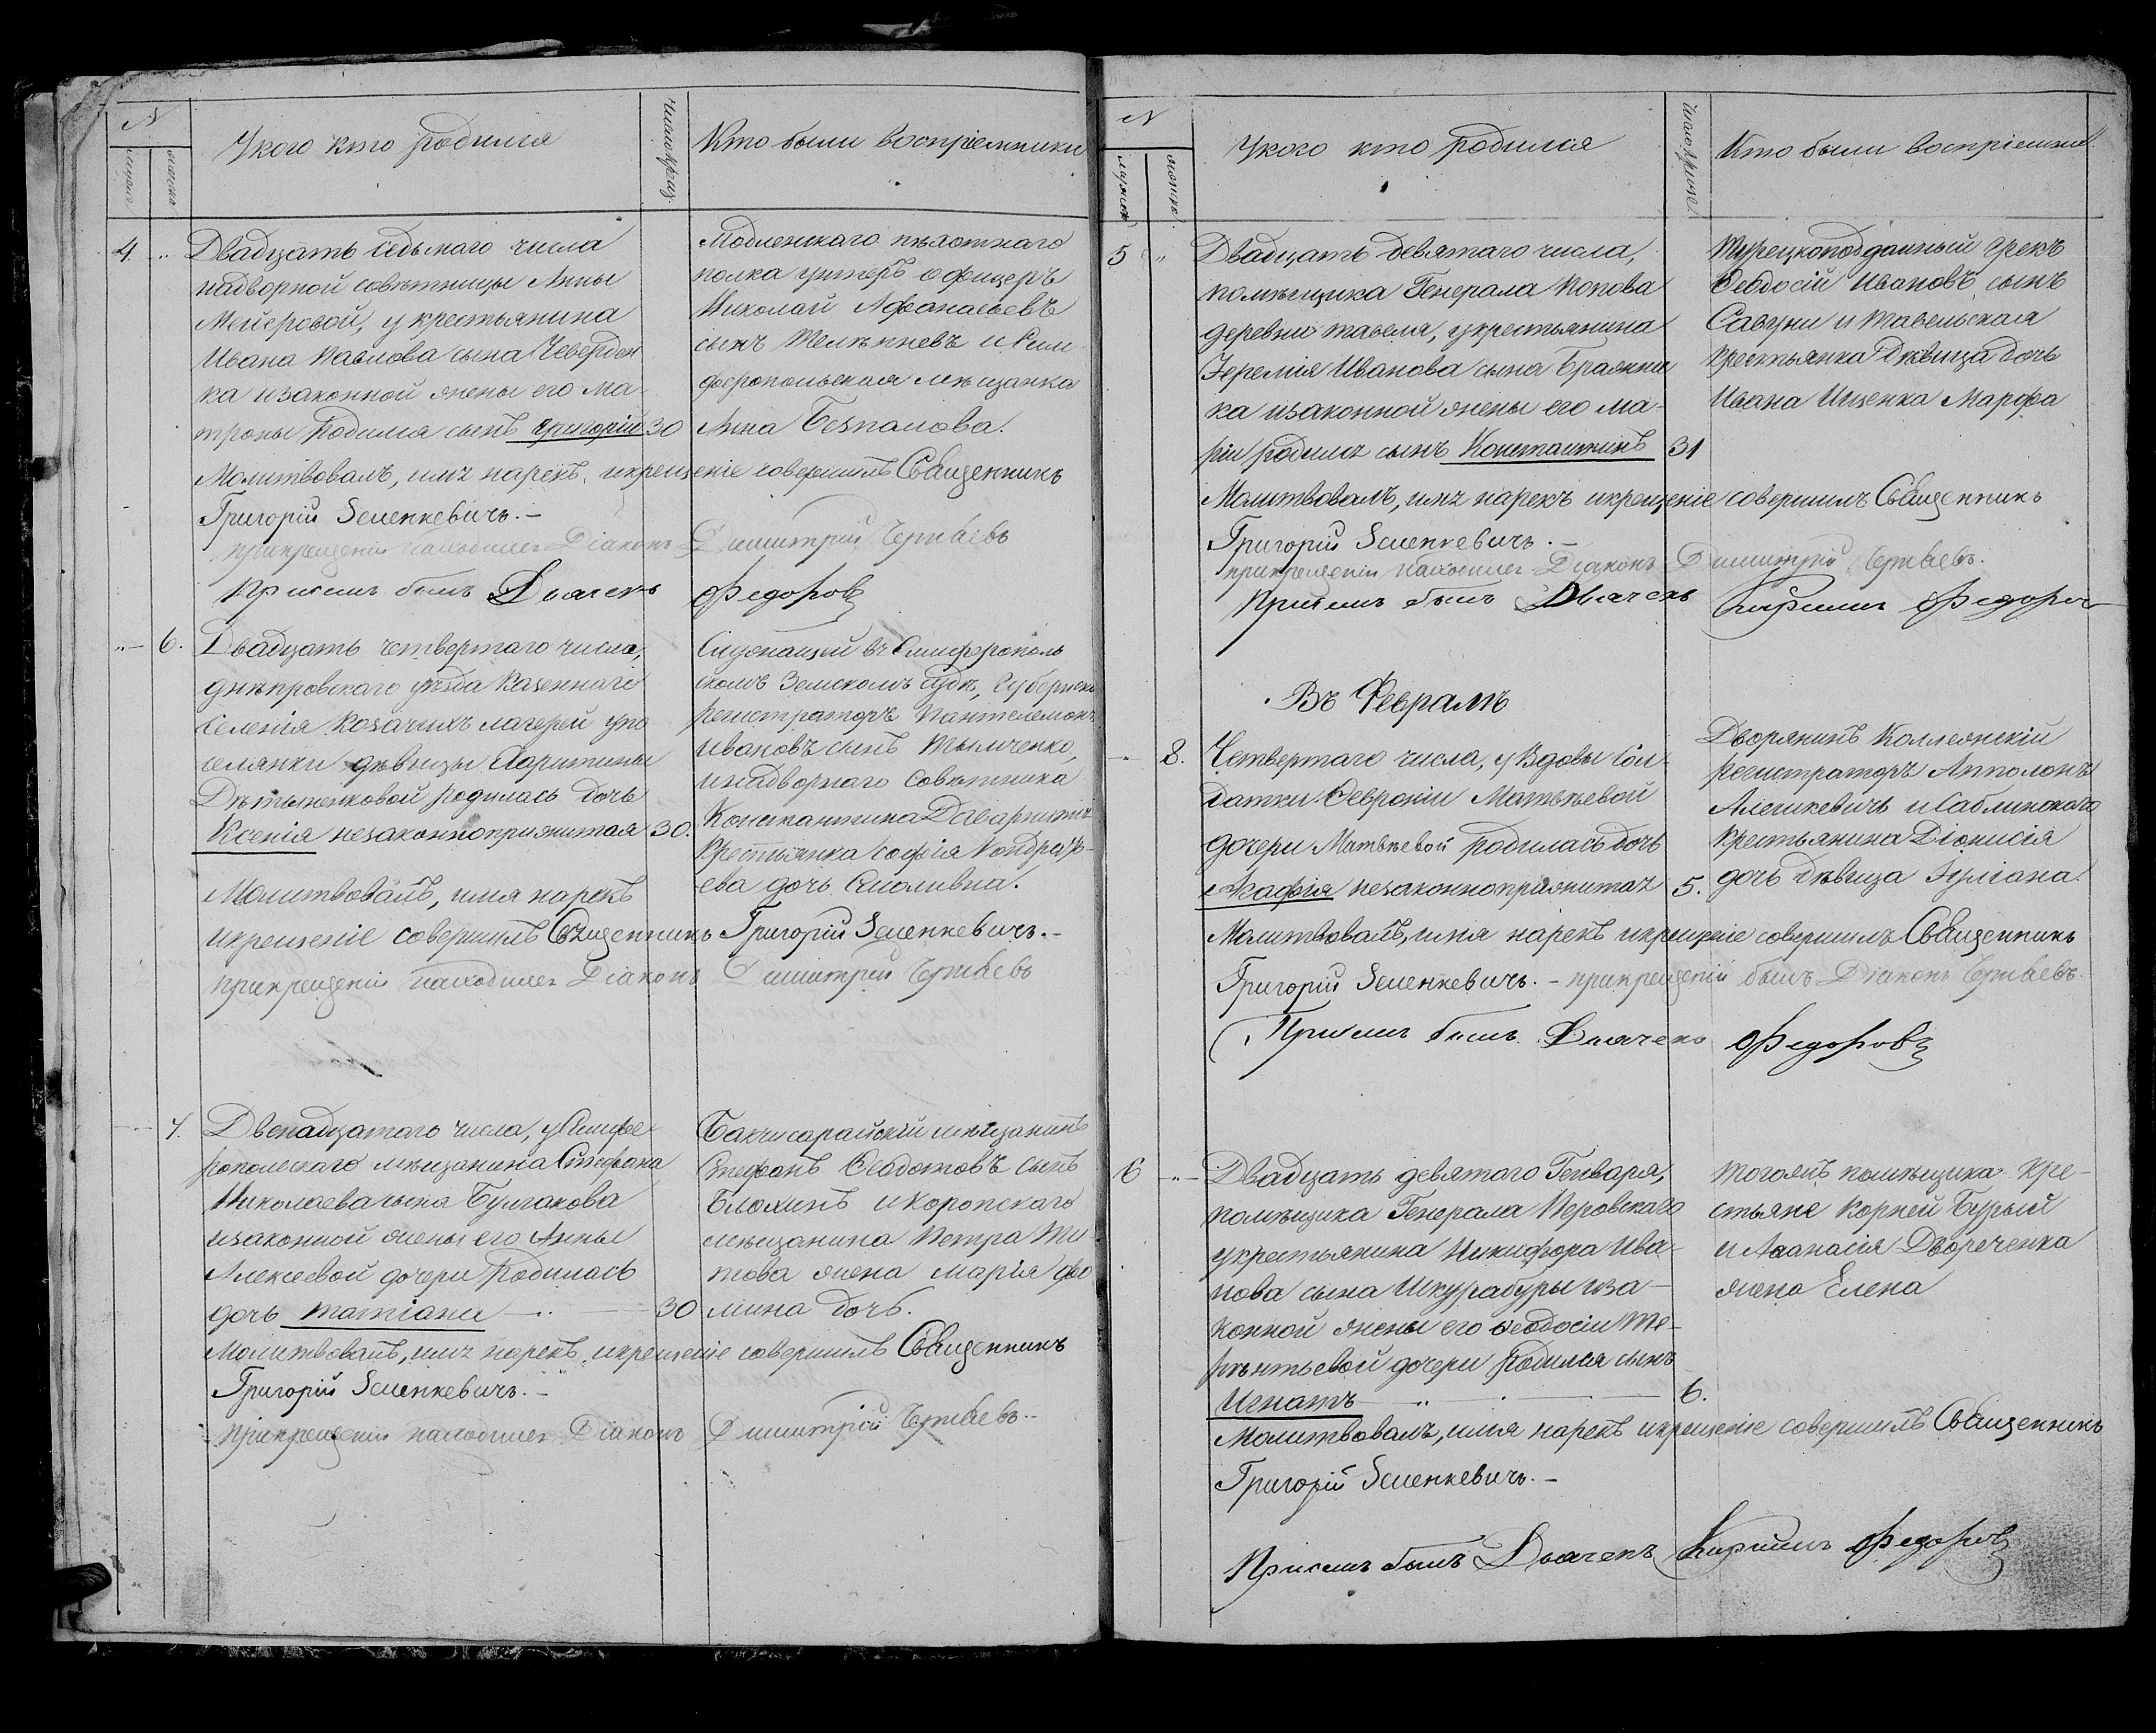 N
мужеска
женска
У кого кто родился
Число крещ.
Кто были восприемники
4 „ Двадцать седьмаго числа
надворной совѣтницы Анны
Мейеровой, у крестьянина
Ивана Павлова сына
ка и законной жены его Ма-
троны родился сынъ Григорій 30
Модленскаго пѣхотнаго
полка унтеръ офицеръ
Николай Афанасьевъ
сынъ и Сим-
феропольская мѣщанка
Анна Безпалова.
Молитвовалъ, имя нарекъ, и крещеніе совершилъ Священникъ
Григорій Зеленкевичъ. –
при крещеніи находился Діаконъ Димитрій
При семъ былъ Дьячекъ Федоровъ
„ 6. Двадцать четвертаго числа,
днѣпровскаго уѣзда Казеннаго
селенія Козачихъ лагерей у по
селянки дѣвицы Харитины
родилась дочь
Ксенія незаконноприжитая 30.
Служащій въ Симферополь
скомъ Земскомъ судѣ, Губернск
регистраторъ Пантелемонъ
Ивановъ сынъ
и надворнаго Совѣтника
Константина
Крестьянка Софія Кондрать-
ева дочь
Молитвовалъ, имя нарекъ
и крещеніе совершилъ Священникъ Григорій Зеленкевичъ. –
при крещеніи находился Діаконъ Димитрій
7. Двенадцатаго числа, у Симфе-
ропольскаго мѣщанина Стефана
Николаева сына Булгакова
и законной жены его Анны
Алексеевой дочери родилась
дочь Татіана 30
Бакчисарайскій мѣщанинъ
Стефанъ Феодотовъ сынъ
Блохинъ и Коропскаго
мѣщанина Петра Ти-
това жена Марія Фо
мина дочь.
Молитвовалъ, имя нарекъ, и крещеніе совершилъ Священникъ
Григорій Зеленкевичъ. –
при крещеніи находился Діаконъ Димитрій
N
мужеска
женска
У кого кто родился
Число крещ.
Кто были восприемники
5 „ Двадцать девятаго числа,
помѣщика Генерала Попова
деревни тавеля, у крестьянина
Іеремія Иванова сына
ка и законной жены его Ма-
ріи родился сынъ Константинъ 31
Турецкоподданный грекъ
Феодосій Ивановъ сынъ
и Тавельская
крестьянка дѣвица дочь
Ивана Ищенка Марфа
Молитвовалъ, имя нарекъ и крещеніе совершилъ Священникъ
Григорій Зеленкевичъ. –
при крещеніи находился Діаконъ Димитрій
При семъ былъ Дьячекъ Кирилъ Федоровъ
Въ Февралѣ
8. Четвертаго числа, у Вдовы Сол-
датки Февроніи Матвѣевой
дочери Матвѣевой родилась дочь
Агафія незаконноприжитая 5.
Дворянинъ Коллежскій
регистраторъ Апполонъ
и Саблинскаго
крестьянина Діонисія
дочь дѣвица Іуліана.
Молитвовалъ, имя нарекъ и крещеніе совершилъ Священникъ
Григорій Зеленкевичъ. – при крещеніи былъ Діаконъ
При семъ былъ Дьячекъ Федоровъ
6 „ Двадцать девятаго Генваря,
помѣщика Генерала Перовскаго
у крестьянина Никифора Ива-
нова сына Шкурабуры и за-
конной жены его Феодосіи Те-
рентьевой дочери родился сынъ
Игнатъ 6.
Тогожъ помѣщика кре-
стьяне Корней Бурый
и Афанасія
жена Елена
Молитвовалъ, имя нарекъ и крещеніе совершилъ Священникъ
Григорій Зеленкевичъ. –
При семъ былъ Дьячекъ Кирилъ Федоровъ